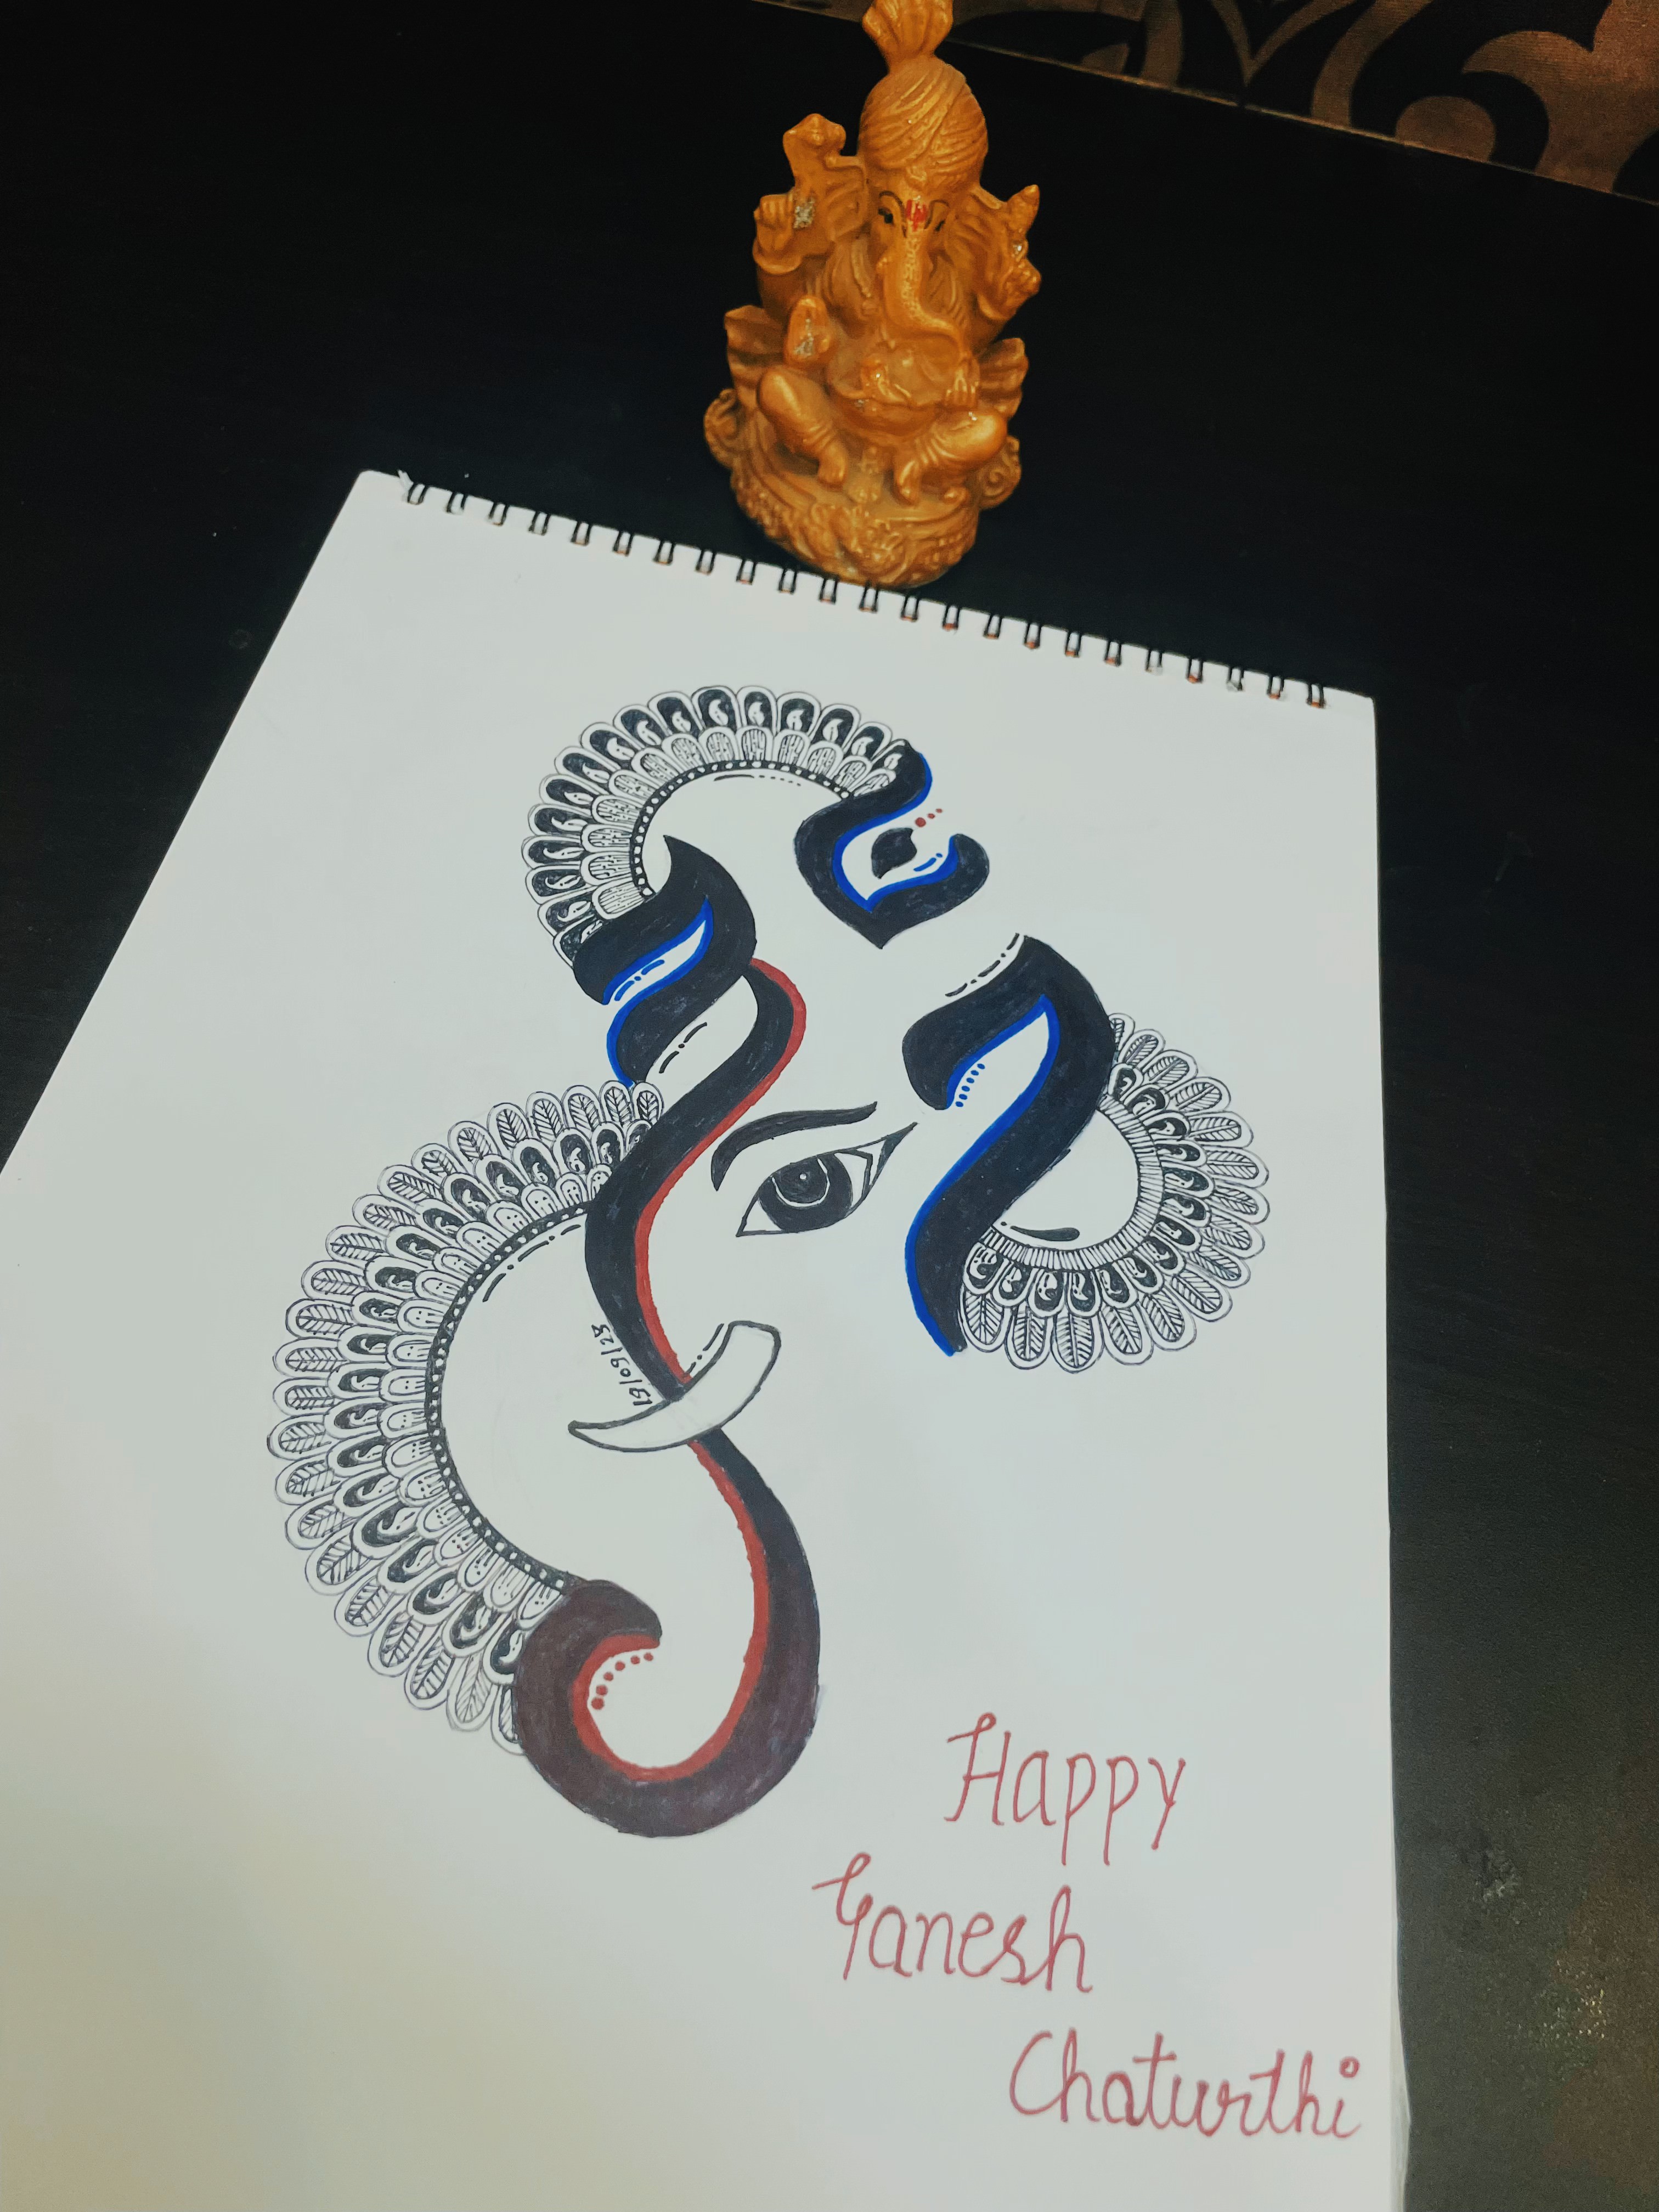 19/09/23
Happy
Ganesh
Chaturthi